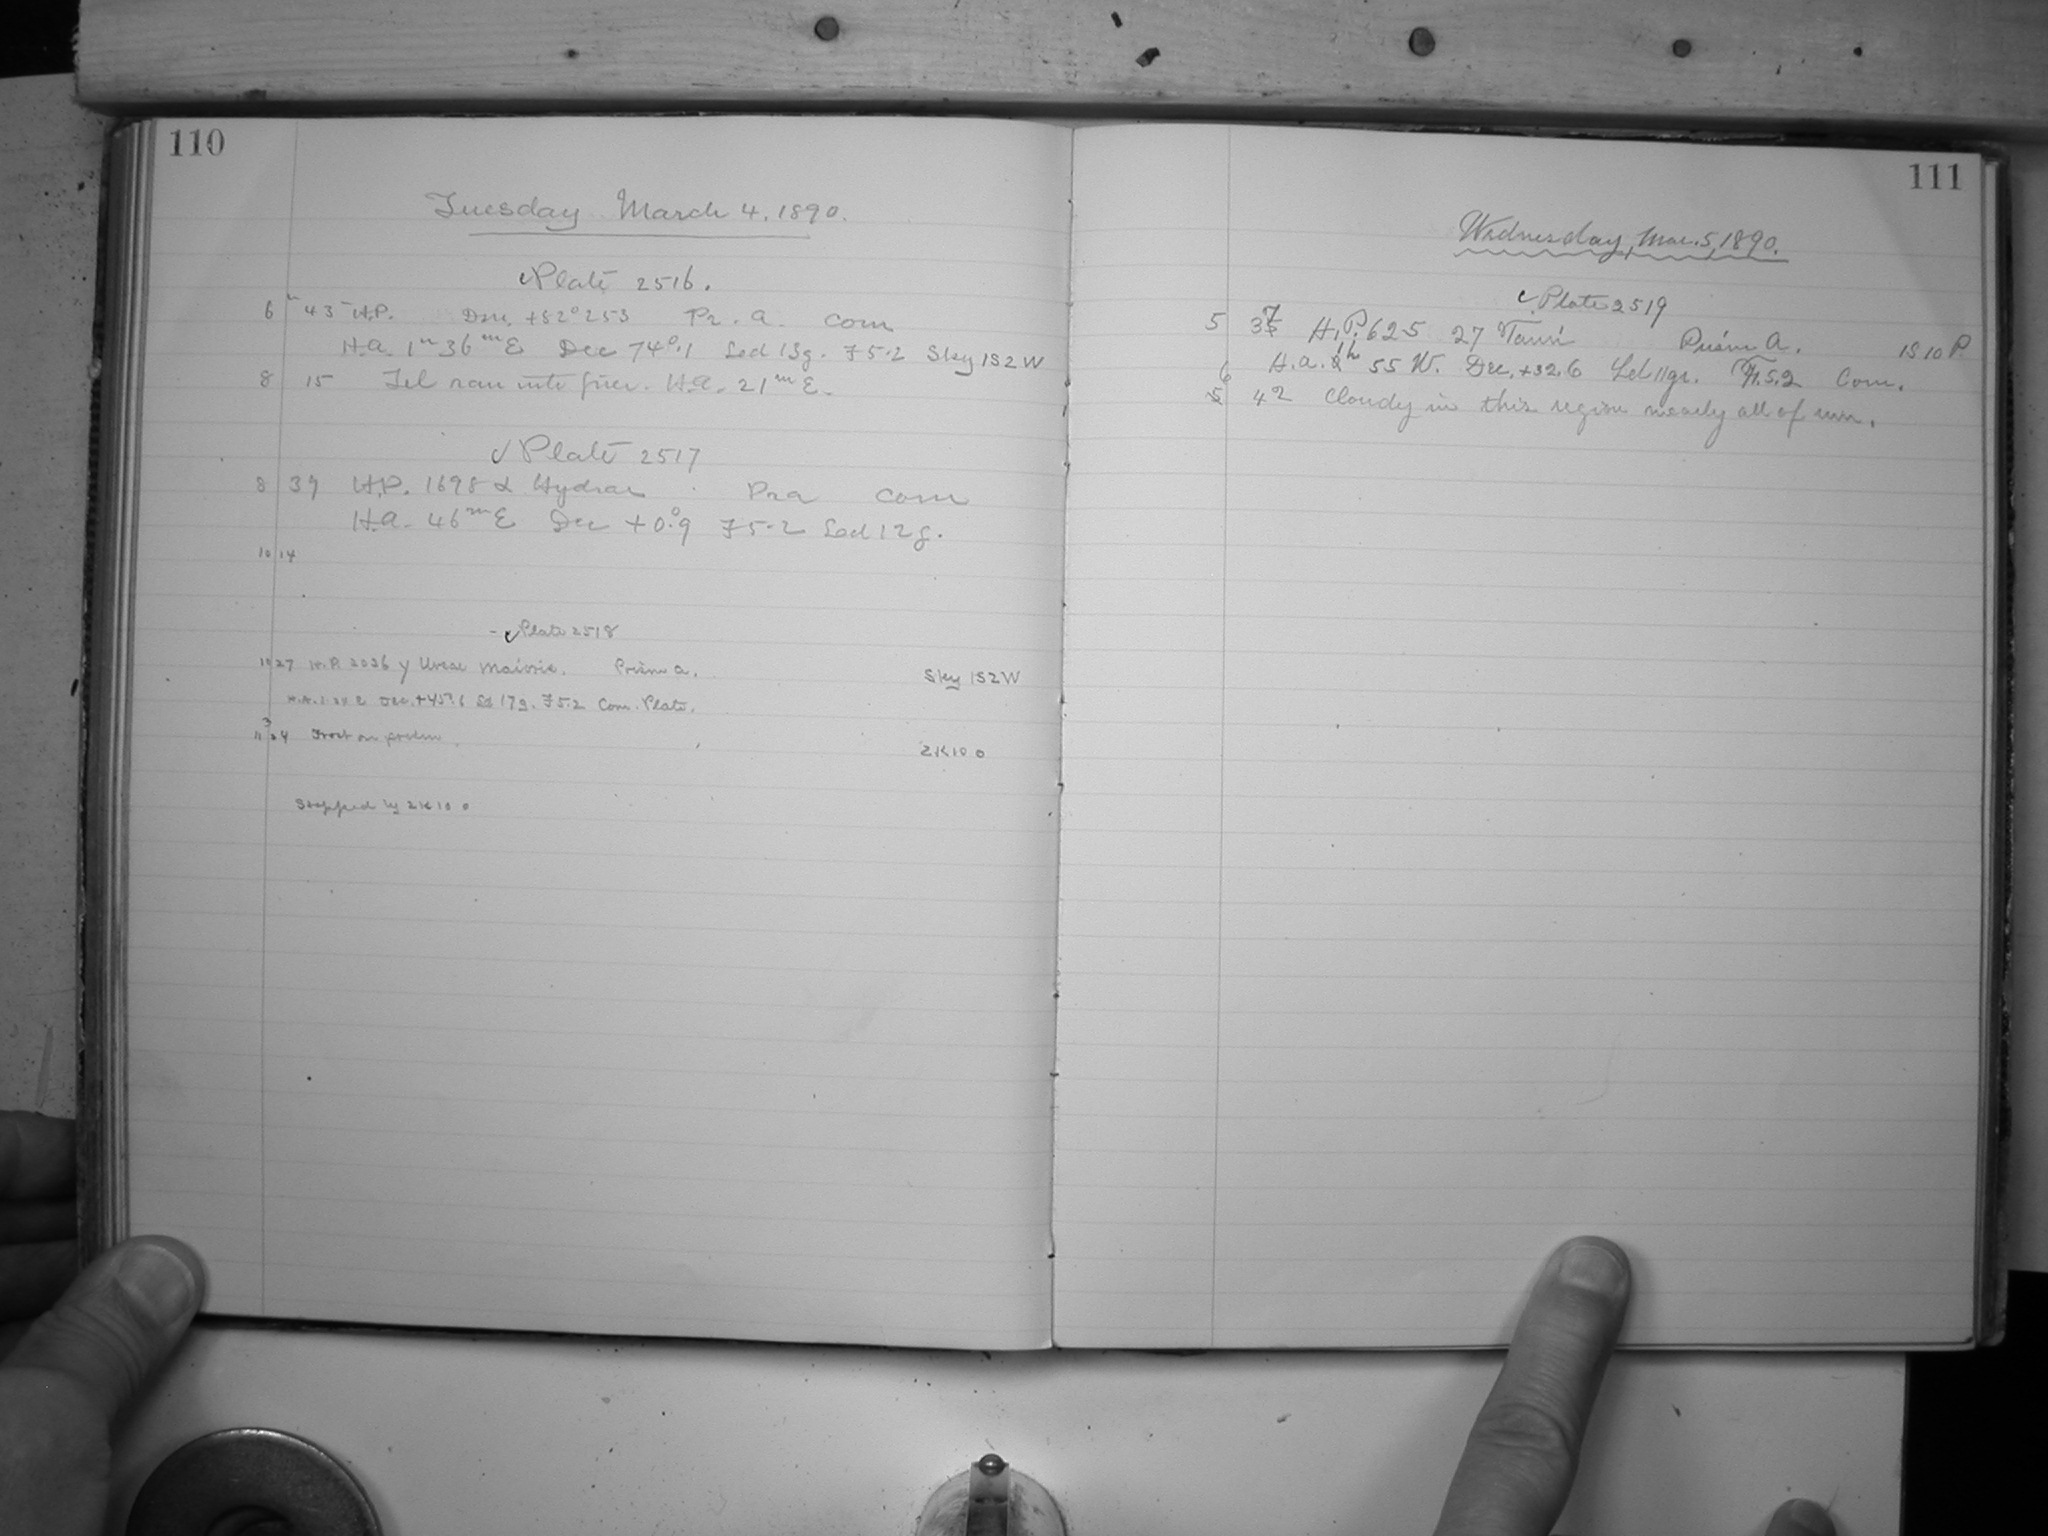 110
Tuesday March 4, 1890.
Plate 2516.
6 43 H.P. Dm. +82° 253 Pr. a. Com
H.a. 1 36 m E Dec 74°.1 Led 13g. F 5.2 Sky 1S2W
8 15 Tel ran into pier. H.a. 21 m E.
Plate 2517
8 39 H.P. 1698 α Hydrae Pr a Com
H.a. 46 m E Dec +0°.9 F 5.2 Led 12g.
10 14
Plate 2518
10 27 H.P. 2036 Ursae Majoris. Prism a. Sky 1S2W
Dec. +45°.6 Led 17g. F 5.2 Com. Plate.
11 34 Frost on prism 2K10 0
Stopped by 2K10 0
111
Wednesday, Mar. 5, 1890.
Plate 2519
5 37 H.P. 625 27 Tauri Prism A. 1S 10 P
H.a. 1h 55 W. Dec. +32.6 Led 11gr. F. 5.2 Com.
6 42 Cloudy in this region nearly all of run.